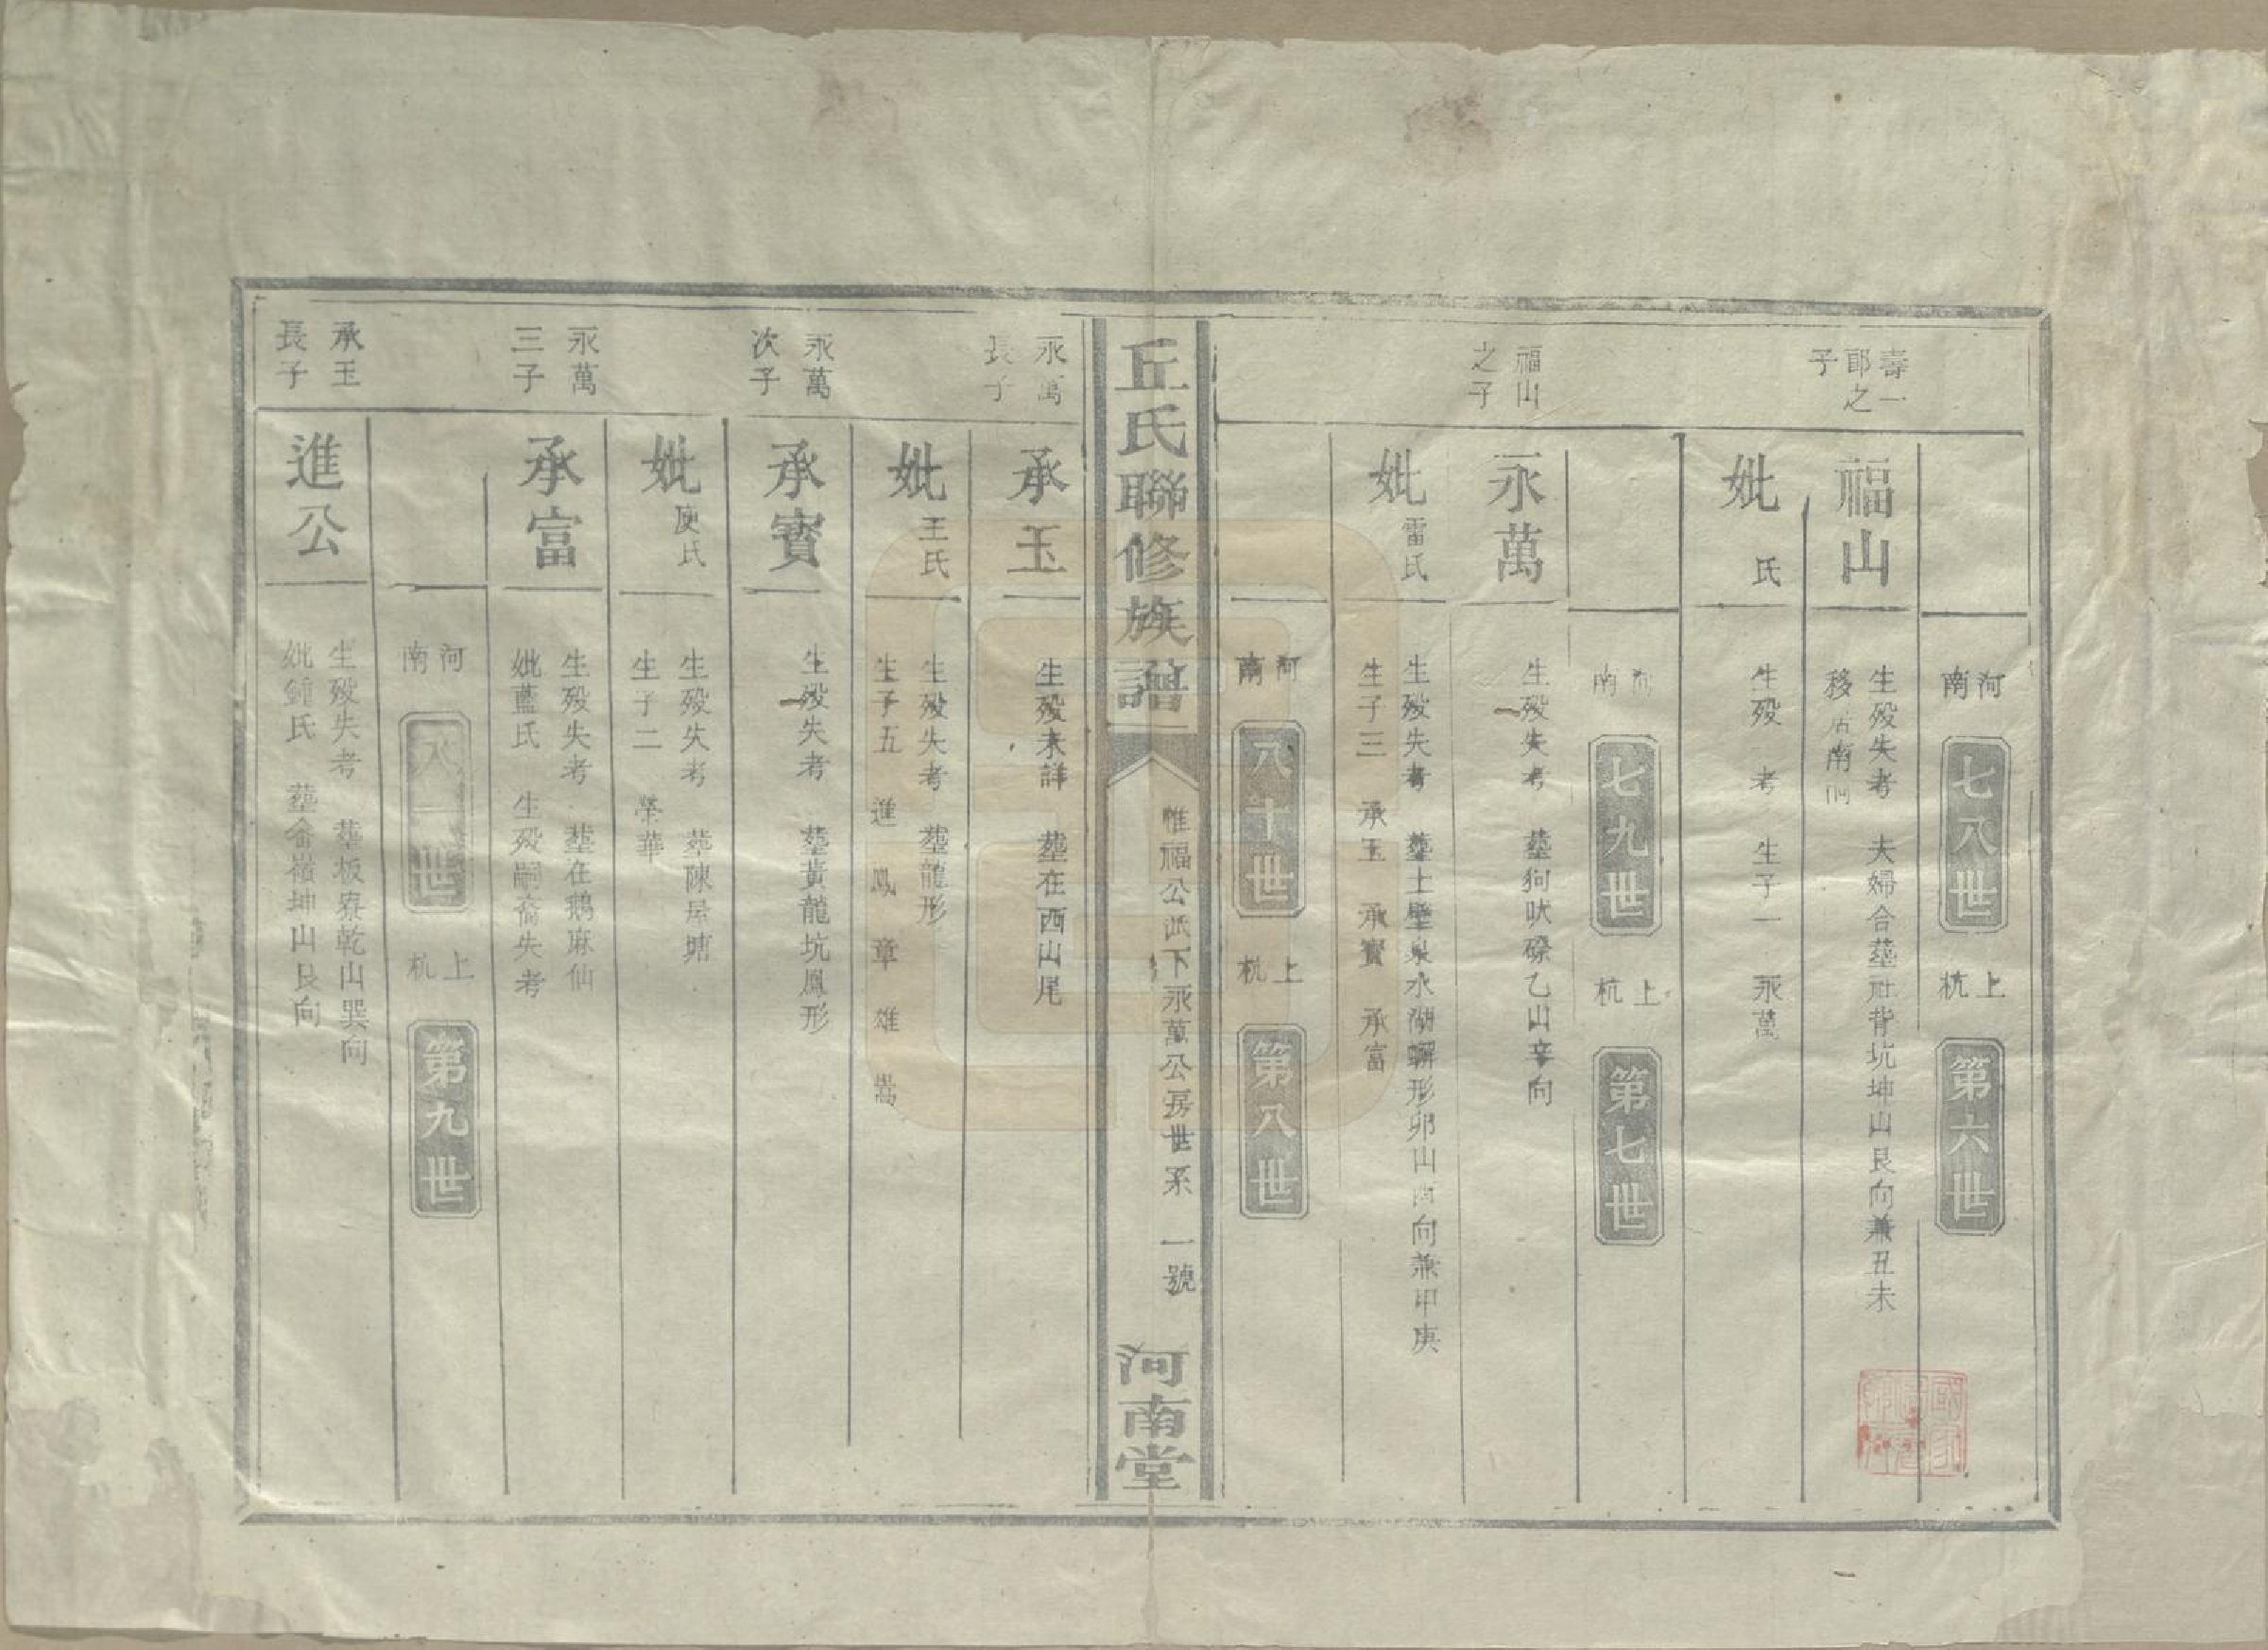 河南 七八世 上杭 第六世
壽一郎之子
福山
生殁失考 夫婦合塟社背坑坤山艮向兼丑未
移居南
妣 氏
生殁 考 生子一 永萬
河南 七九世 上杭 第七世
福山之子
永萬
生殁失考 塟狗吠磜乙山辛向
妣雷氏
生殁失考 塟上壁泉水湖形卯山酉向兼甲庚
生子三 承玉 承寶 承富
河南 八十世 上杭 第八世
丘氏聯修族譜
惟福公派下永萬公房世系 一號
河南堂
永萬長子
承玉
生殁未詳 塟在西山尾
妣王氏
生殁失考 塟龍形
生子五 進 鳳 章 雄 嵩
永萬次子
承寶
生殁失考 塟黃龍坑鳳形
妣庚氏
生殁失考 塟陳屋塘
生子二 榮華
永萬三子
承富
生殁失考 塟在鵝麻仙
妣藍氏 生殁嗣裔失考
河南 八一世 上杭 第九世
承玉長子
進公
生殁失考 塟板寮乾山巽向
妣鍾氏 塟畬嶺坤山艮向